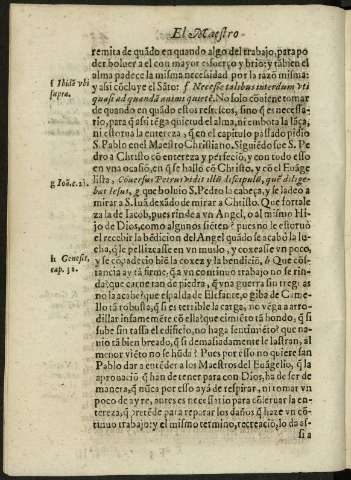 El Maestro
remita de quãdo en quando algo del trabajo, para po
der boluer a el con mayor esfuerço y brio: y tãbien el
alma padece la misma necesidad por la razõ misma:
f Ibidẽ vbi supra.
y asi cõcluye el Sãto: f Necesse talibus interdum vti
quasi ad quandã animi quietẽ. No solo conuiene tomar
de quando en quãdo estos refrescos, sino q̃ es necessa-
rio, para q̃ asi tẽga quietud el alma, ni embota la lãça,
ni estorua la entereza, q̃ en el capitulo passado pidio
S. Pablo en el Maestro Christiano. Siguiẽdo fue S. Pe
dro a Christo cõ entereza y perfeciõ, y con todo esso
en vna ocasiõ, en q̃ se hallò cõ Christo, y cõ el Euãge
g Ioñ.c.21.
lista, Cõuersus Petrus vidit illũ discipulũ, quẽ dilige-
bat Iesus, g que boluio S. Pedro la cabeça, y se ladeò a
mirar a S. Iuã dexãdo de mirar a Christo. Que fortale
za la de Iacob, pues rinde a vn Angel, o al mismo Hi-
jo de Dios, como algunos siẽten? pues no le estoruò
el recebir la bẽdicion del Angel quãdo se acabò la lu
cha, q̃ le pellizcasse en vn muslo, y coxeasse vn poco,
h Genesis, cap. 32.
y se cõpadecio biẽ la coxez y la bendiciõ, h Que cõs-
tancia ay tã firme, q̃ a vn continuo trabajo no se rin-
da? que carne tan de piedra, q̃ vna guerra sin treguas
no la acabe? que espalda de Elefante, o giba de Came
llo tã robusta, q̃ si es terrible la carga, no vẽga a arro-
dillar infamemẽte cõ ella? que cimiẽto tã hondo, q̃ si
sube sin tassa el edificio, no haga sentimiẽto? que na-
uio tã bien breado, q̃ si demasiadamente le lastran, al
menor viẽto no se hũda? Pues por esso no quiere san
Pablo dar a entẽder a los Maestros del Euãgelio, q̃ la
aprouaciõ q̃ han de tener para con Dios, ha de ser de
manera, q̃ nũca por esso aya de respirar, ni tomar vn
poco de ayre, antes es necessario para cõseruar la en-
tereza, q̃ pretẽde para reparar los daños q̃ haze vn cõ-
tinuo trabajo: y el mismo termino, recreaciõ, lo da as-
si a